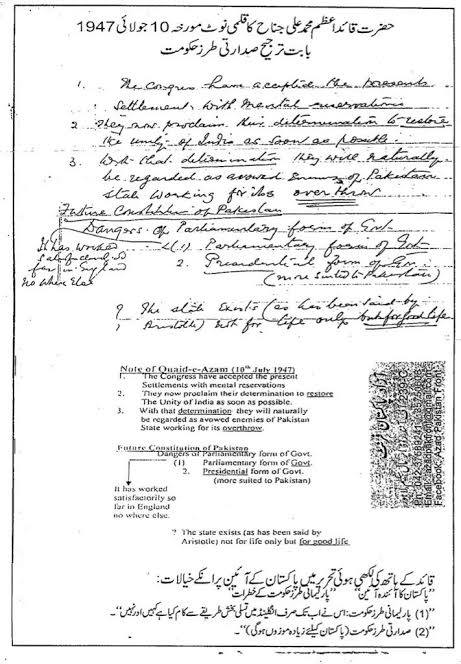 حضرت قائد اعظم محمد علی جناح کا قلمی نوٹ مورخہ 10 جولائی 1947
بابت ترجیح صدارتی طرز حکومت
1. The Congress have accepted the present
Settlement with mental reservations
2. They now proclaim their determination to restore
the unity of India as soon as possible.
3. With that determination they will naturally
be regarded as avowed enemies of Pakistan
State working for its overthrow
Future Constitution of Pakistan
Dangers of Parliamentary form of Govt.
(1) Parliamentary form of Govt
2. Presidential form of Gov.
(more suited to Pakistan)
It has worked
satisfactorily so
far in England
no where else
? The state exists (as has been said by
Aristotle) not for life only but for good life
Note of Quaid-e-Azam (10th July 1947)
1. The Congress have accepted the present
Settlements with mental reservations
2. They now proclaim their determination to restore
The Unity of India as soon as possible.
3. With that determination they will naturally
be regarded as avowed enemies of Pakistan
State working for its overthrow.
Future Constitution of Pakistan
Dangers of Parliamentary form of Govt.
(1) Parliamentary form of Govt.
2. Presidential form of Govt.
(more suited to Pakistan)
It has worked
satisfactorily so
far in England
no where else.
? The state exists (as has been said by
Aristotle) not for life only but for good life
Facebook: Azad Pakistan Front
قائد کے ہاتھ کی لکھی ہوئی تحریر میں پاکستان کے آئین پر انکے خیالات:
"پاکستان کا آئندہ آئین" "پارلیمانی طرز حکومت کے خطرات"
"(1) پارلیمانی طرز حکومت: اس نے اب تک صرف انگلینڈ میں تسلی بخش طریقے سے کام کیا ہے کہیں اور نہیں"۔
"(2) صدارتی طرز حکومت (پاکستان کیلئے زیادہ موزوں ہوگی)"